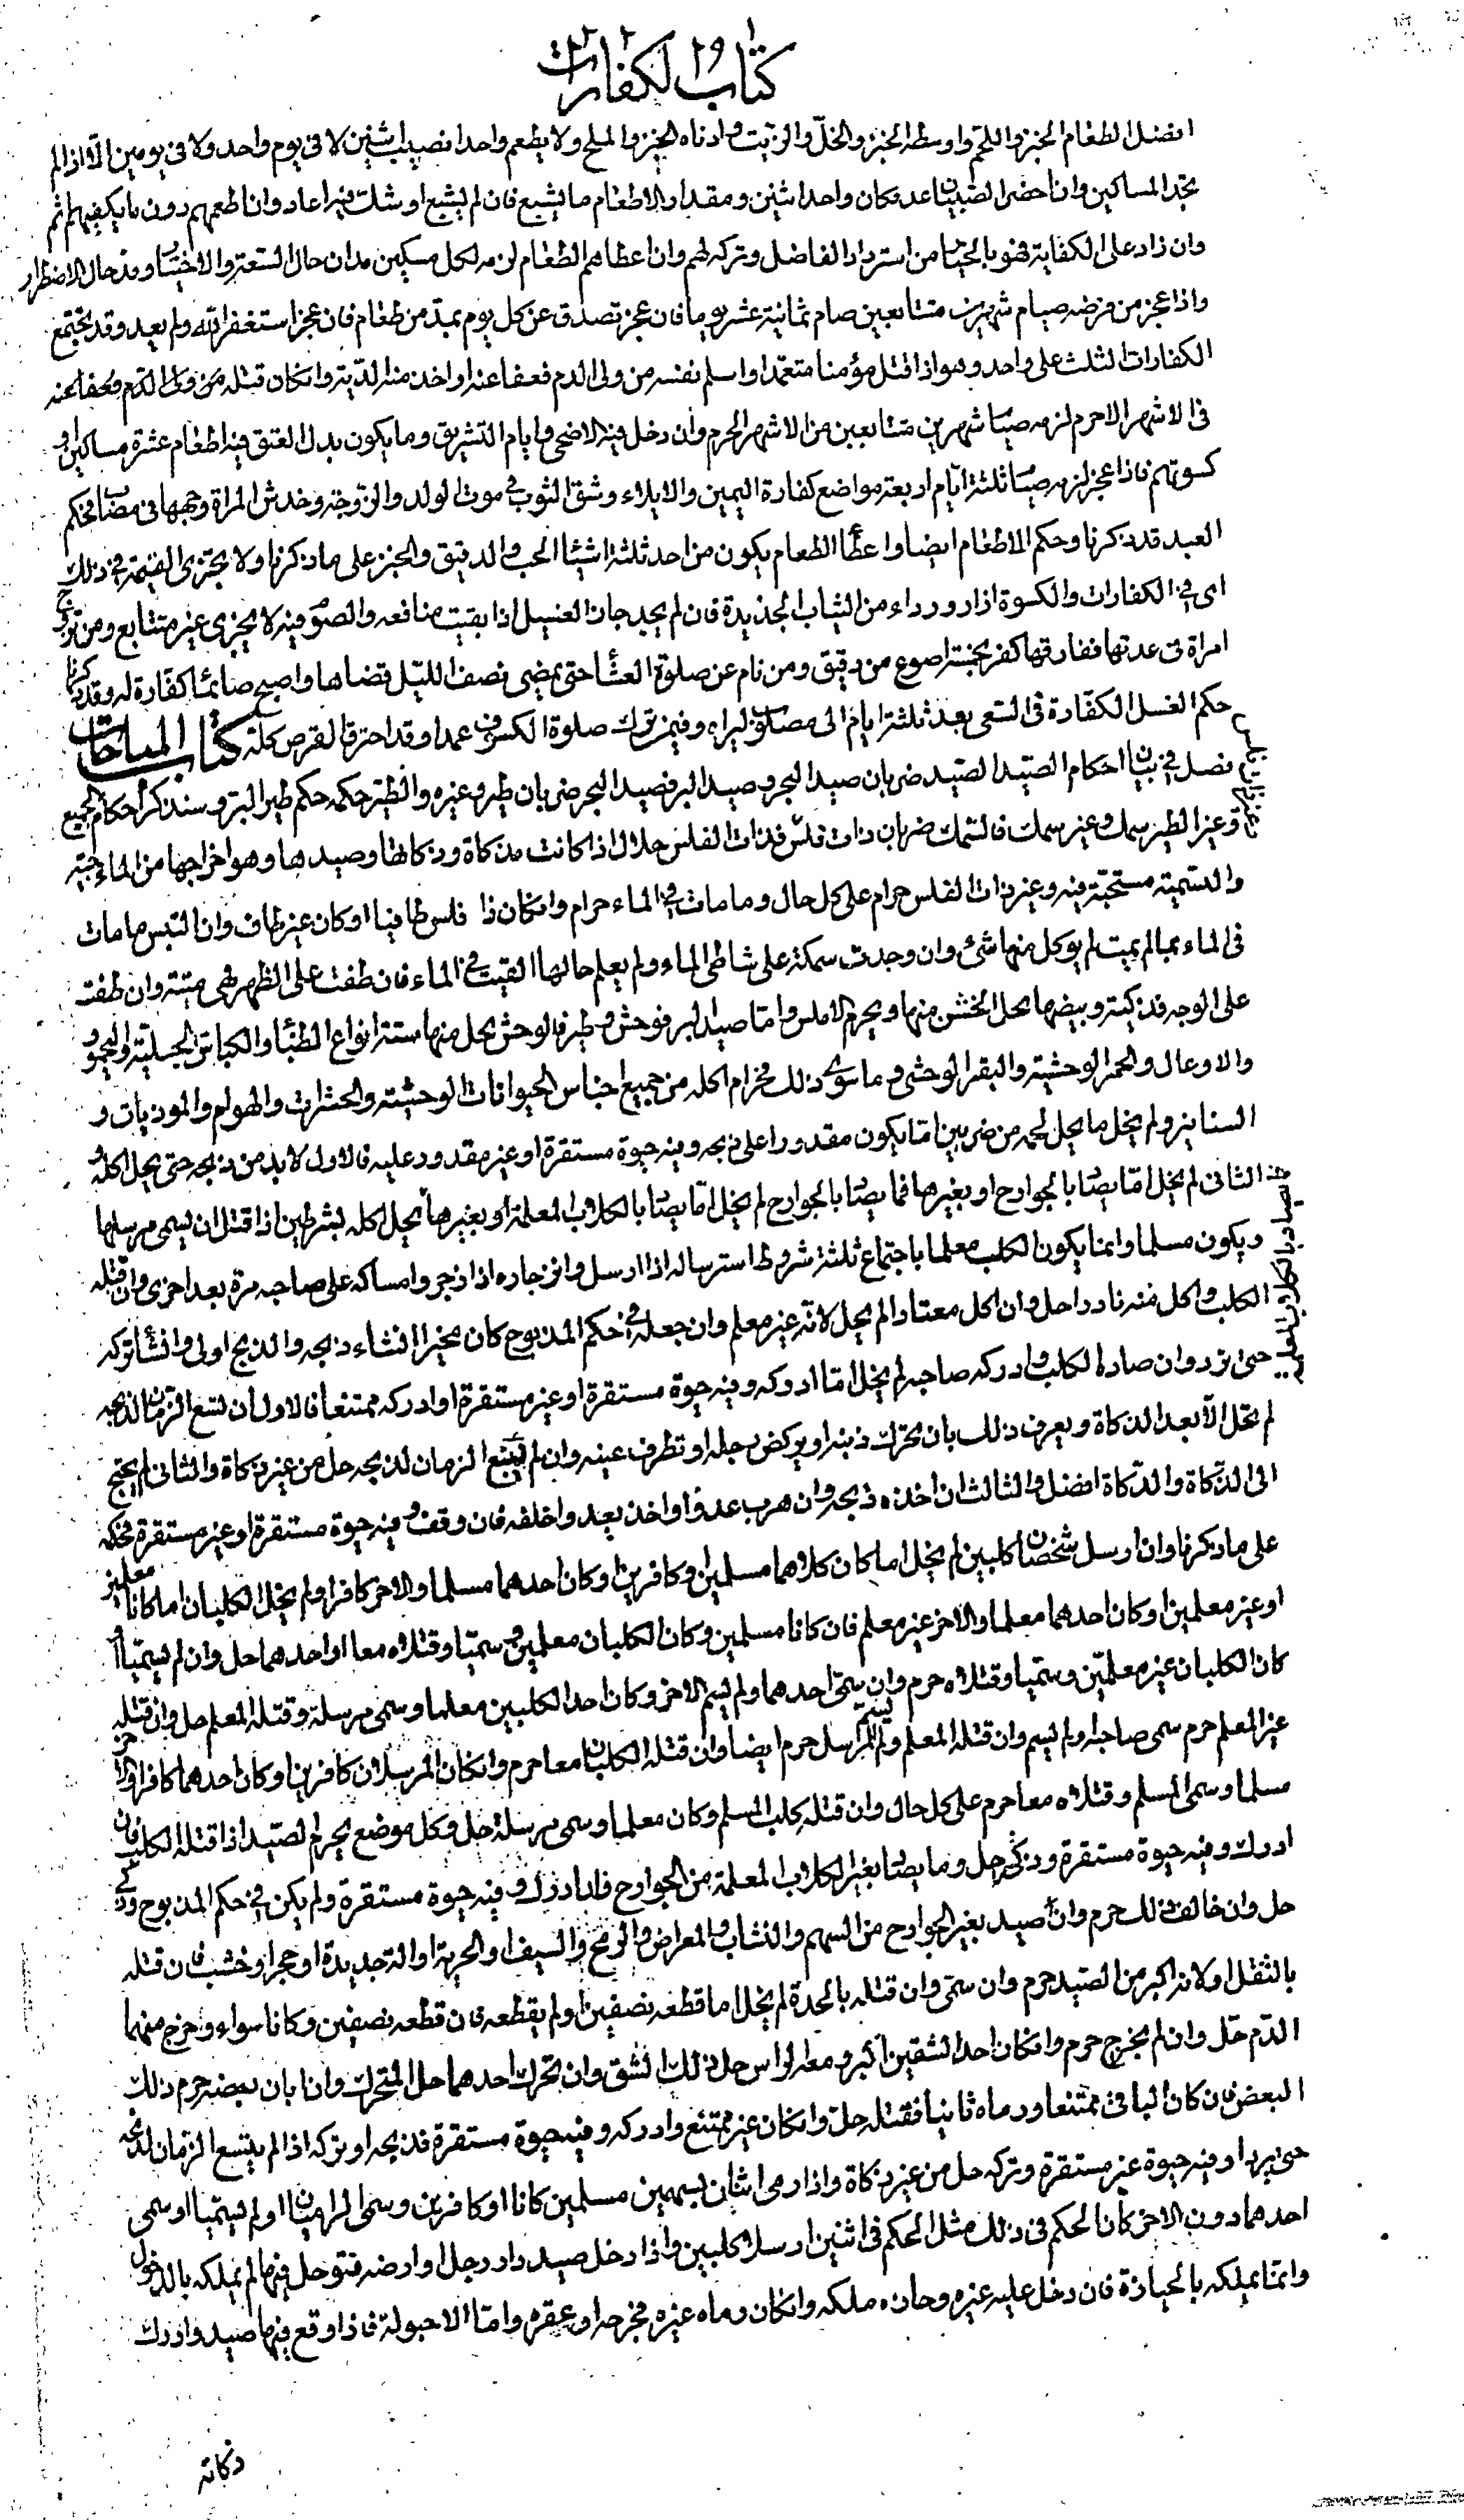 كتاب الكفارات
افضل الطعام الخبز واللحم واوسطه الخبز والخل والزيت وادناه الخبز والملح ولا يطعم واحدا نصيب اثنين لا في يوم واحد ولا في يومين الا اذا لم
يجد المساكين وان احضر الصبيان عد مكان واحد اثنين ومقدار الاطعام ما يشبع فان لم يشبع او شك فيه اعاد وان اطعمهم دون ما يكفيهم اثم
وان زاد على الكفاية فهو بالخيار من استرداد الفاضل وتركه لهم وان اعطاهم الطعام لزمه لكل مسكين مدان حال السعة والاختيار ومد حال الاضطرار
واذا عجز من فرضه صيام شهرين متتابعين صام ثمانية عشر يوما فان عجز تصدق عن كل يوم بمد من طعام فان عجز استغفر الله ولم يعد وقد يجتمع
الكفارات الثلث على واحد وهو اذا قتل مؤمنا متعمدا واسلم نفسه من ولى الدم فعفا عنه او اخذ منه الدية وانكان قتله من ولى الدم وعفا عنه
في الاشهر الاحرم لزمه صيام شهرين متتابعين من الاشهر الحرم وان دخل فيه الاضحى وايام التشريق وما يكون بدل العتق فيه اطعام عشرة مساكين او
كسوتهم فاذا عجز لزمه صيام ثلثة ايام اربعة مواضع كفارة اليمين والايلاء وشق الثوب في موت الولد والزوجة وخدش المراة وجهها في مصاب فحكم
العبد قد ذكرنا وحكم الاطعام ايضا واعطاء الطعام يكون من احد ثلثة اشياء الحب والدقيق والخبز على ما ذكرنا ولا يجتزى القيمة في ذلك
اى في الكفارات والكسوة ازار ورداء من الثياب الجديدة فان لم يجد جاز الغسيل اذا بقيت منافعه والصوم فيه لا يجزى غير متتابع ومن تزوج
امراة في عدتها ففارقها كفر بخمسة اصوع من دقيق ومن نام عن صلوة العشاء حتى يمضى نصف الليل قضاها واصبح صائما كفارة له وقد ذكرنا
حكم الغسل الكفارة في السعى بعد ثلثة ايام الى مصلوب ليراه وفيمن ترك صلوة الكسوف عمدا وقد احترق القرص كله كتاب المباحات
فصل في بيان احكام الصيد الصيد ضربان صيد البحر وصيد البر فصيد البحر ضربان طير وغيره والطير حكمه حكم طير البر وسنذكر احكام الجميع
وغير الطير سمك وغير سمك فالسمك ضربان ذات فلس فذات الفلس حلال اذا كانت مذكاة وذكاتها وصيدها وهو اخراجها من الماء حية
والتسمية مستحبة فيه وغير ذات الفلس حرام على كل حال وما مات في الماء حرام وانكان ذا فلس طافيا او كان غير طاف وان التبس ما مات
في الماء بما لم يمت لم يوكل منها شئ وان وجدت سمكة على شاطى الماء ولم يعلم حالها القيت في الماء فان طفت على الظهر فهى ميتة وان طفت
على الوجه فذكية وبيضها يحل الخشن منها ويحرم الاملس واما صيد البر فوحش وطير فالوحش يحل منها ستة انواع الظباء والكباش الجبلية واليحمور
والاوعال والحمر الوحشية والبقر الوحشى وما سوى ذلك فحرام اكله من جميع اجناس الحيوانات الوحشية والحشرات والهوام والموذيات و
السنانير ولم يخل ما يحل لحمه من ضربين اما يكون مقدورا على ذبحه وفيه حيوة مستقرة او غير مقدور عليه فالاول لا بد من ذبحه حتى يحل اكله و
الثانى لم يخل اما يصاد بالجوارح او بغيرها فما يصاد بالجوارح لم يخل اما يصاد بالكلاب المعلمة او بغيرها يحل اكله بشرطين اذا قتل ان يسمى مرسلها
ويكون مسلما وانما يكون الكلب معلما باجتماع ثلثة شروط استرساله اذا ارسل وانزجاره اذا زجر وامساكه على صاحبه مرة بعد اخرى وان قتله
الكلب واكل منه نادرا حل وان اكل معتادا لم يحل لانه غير معلم وان جعله في حكم المذبوح كان مخيرا ان شاء ذبحه والذبح اولى وان شاء تركه
حتى يرد وان صاده الكلب وادركه صاحبه لم يخل اما ادركه وفيه حيوة مستقرة او غير مستقرة او ادركه ممتنعا فالاول ان يتسع الزمان لذبحه
لم يحل الا بعد الذكاة ويعرف ذلك بان يحرك ذنبه او يركض رجله او تطرف عينه وان لم يتسع الزمان لذبحه حل من غير ذكاة والثانى لم يحتج
الى الذكاة والذكاة افضل والثالث ان اخذه ذبحه وان هرب عدوا واخذ بعد واخلفه فان وقف وفيه حيوة مستقرة او غير مستقرة فحكمه
على ما ذكرنا وان ارسل شخصان كلبين لم يخل اما كان كلاهما مسلمين او كافرين او كان احدهما مسلما والاخر كافرا ولم يخل الكلبان اما كانا معلمين
او غير معلمين او كان احدهما معلما والاخر غير معلم فان كانا مسلمين وكان الكلبان معلمين وسميا وقتلاه معا او احدهما حل وان لم يسميا او
كان الكلبان غير معلمين وسميا وقتلاه حرم وان سمى احدهما ولم يسم الاخر وكان احد الكلبين معلما وسمى مرسله وقتله المعلم حل وان قتله
غير المعلم حرم سمى صاحبه او لم يسم وان قتله المعلم ولم يسم المرسل حرم ايضا وان قتله الكلبان معا حرم وانكان المرسلان كافرين او كان احدهما كافرا والاخر
مسلما وسمى المسلم وقتلاه معا حرم على كل حال وان قتله كلب المسلم وكان معلما وسمى مرسله حل وكل موضع يحرم الصيد اذا قتله الكلب فان
ادرك وفيه حيوة مستقرة وذكى حل وما يصاد بغير الكلاب المعلمة من الجوارح فاذا ادرك وفيه حيوة مستقرة ولم يكن في حكم المذبوح وذكى
حل وان خالف ذلك حرم وان صيد بغير الجوارح من السهم والنشاب والمعراض والرمح والسيف او الحربة او الة حديدة او حجر او خشب فان قتله
بالثقل او لانه اكبر من الصيد حرم وان سمى وان قتله بالحدة لم يخل اما قطعه نصفين او لم يقطعه فان قطعه نصفين وكانا سواء وخرج منهما
الدم حل وان لم يخرج حرم وانكان احد الشقين اكبر ومعه الراس حل ذلك الشق وان تحرك احدهما حل المتحرك وان ابان بعضه حرم ذلك
البعض فان كان الباقي ممتنعا ورماه ثانيا فقتله حل وانكان غير ممتنع وادركه وفيه حيوة مستقرة فذبحه او تركه اذا لم يتسع الزمان لذبحه
حتى يبرد او فيه حيوة غير مستقرة وتركه حل من غير ذكاة واذا رمى اثنان بسهمين مسلمين كانا او كافرين وسمى الراميان او لم يسميا او سمى
احدهما دون الاخر كان الحكم في ذلك مثل الحكم في اثنين ارسلا كلبين واذا دخل صيد دار رجل او ارضه فتوحل فيها لم يملكه بالدخول
وانما يملكه بالحيازة فان دخل عليه غيره وحازه ملكه وانكان رماه غيره فجرحه او عقره واما الاحبولة فاذا وقع فيها صيد وادرك
ذكاته